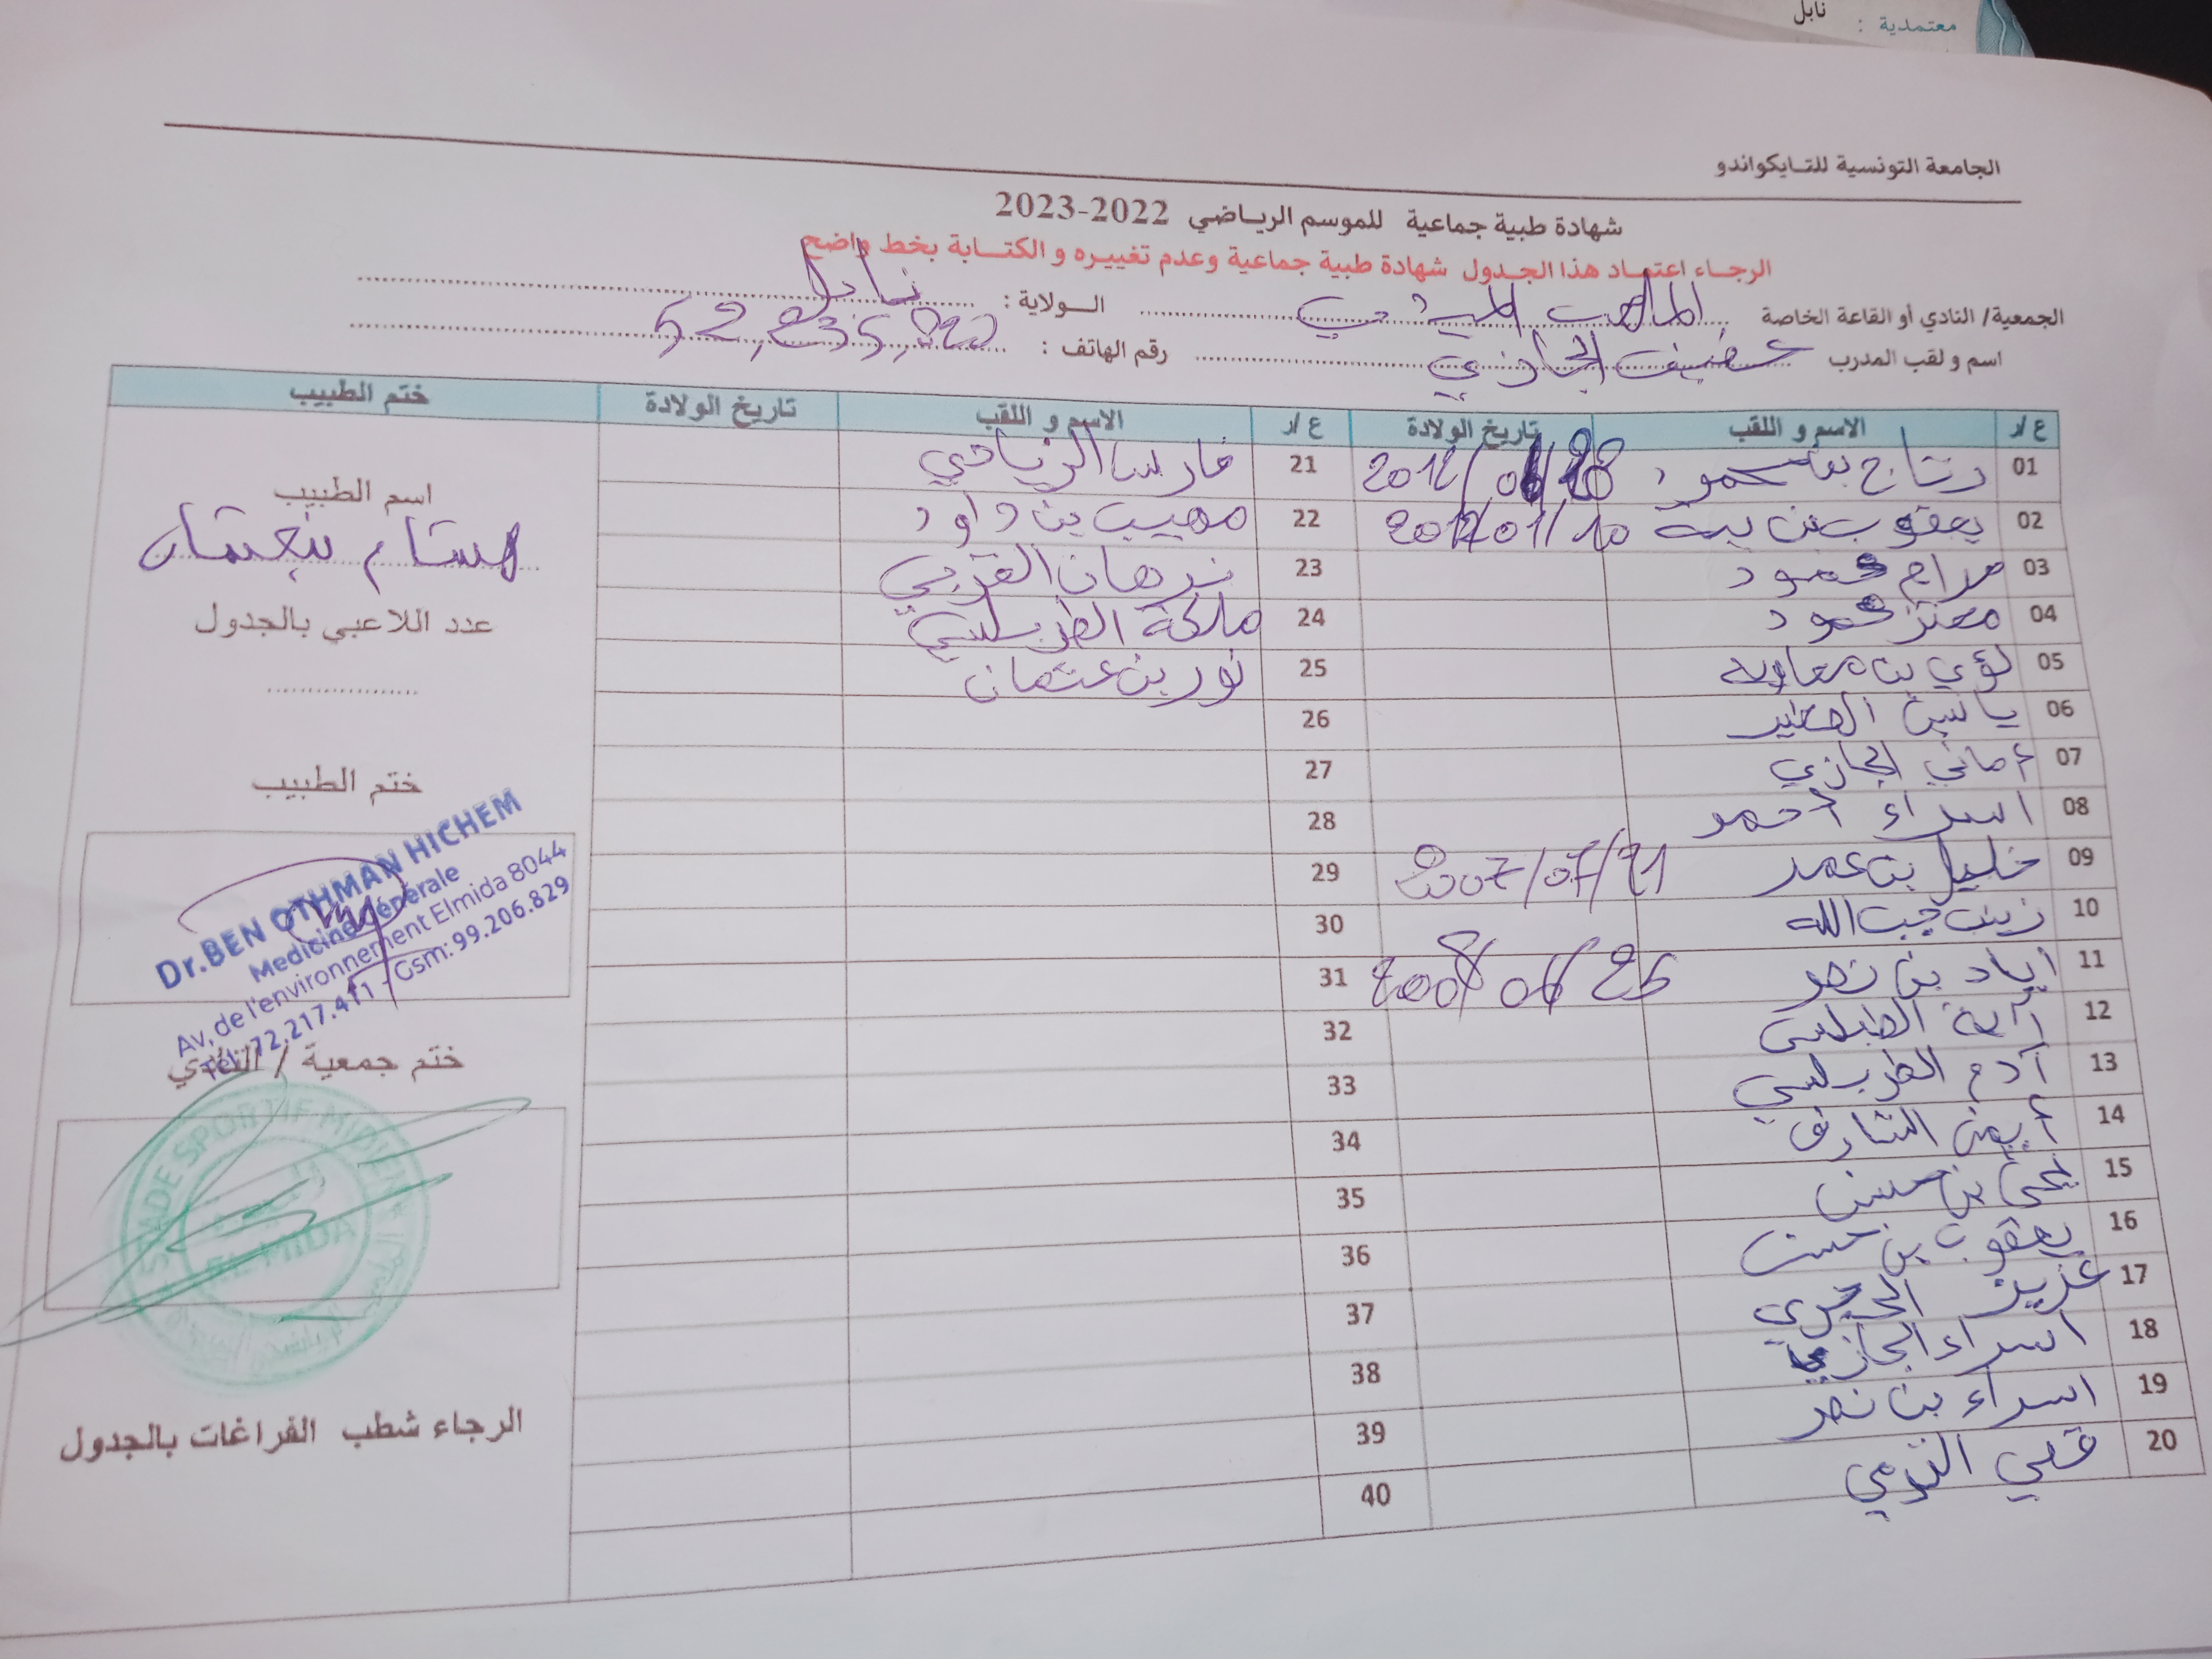 معتمدية : نابل
الجامعة التونسية للتايكواندو
شهادة طبية جماعية للموسم الرياضي 2022-2023
الرجاء اعتماد هذا الجدول شهادة طبية جماعية وعدم تغييره و الكتابة بخط واضح
الجمعية/ النادي أو القاعة الخاصة الملعب الميدي الولاية : نابل
اسم و لقب المدرب الحجازي رقم الهاتف :
ع/ر الاسم و اللقب تاريخ الولادة ع/ر الاسم و اللقب تاريخ الولادة ختم الطبيب
01 رتاج 21 فارس الرياحي
02 يعقوب بن بية 2012/01/10 22 مهيب بن داود
03 محمود 23 نورهان القزبي
04 معتز محمود 24 ملكة الطربلسي
05 لؤي بن معاوية 25 نور بن عثمان
06 ياسين الصغير 26
07 أماني الحجازي 27
08 اسراء أحمد 28
09 خليل بن عمر 2007/07/21 29
10 زينب جب الله 30
11 اياد بن نصر 2008/06/26 31
12 آية 32
13 آدم الطربلسي 33
14 أيمن الشارف 34
15 يحيى بن حسين 35
16 يعقوب بن حسن 36
17 عزيز الجبري 37
18 اسراء الحجازي 38
19 اسراء بن نصر 39
20 قصي التومي 40
اسم الطبيب
هشام بنعثمان
عدد اللاعبي بالجدول
ختم الطبيب
Dr.BEN OTHMAN HICHEM
Medicine Générale
Av, de l'environnement Elmida 8044
Tél: 72.217.411 - Gsm: 99.206.829
ختم جمعية / النادي
STADE SPORTIF MIDIEN
EL MIDA
الرجاء شطب الفراغات بالجدول